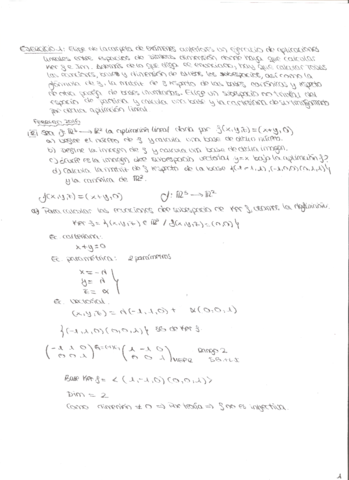 EJERCICIO 1: Elige de la carpeta de exámenes anteriores un ejercicio de aplicaciones
lineales entre espacios de distinta dimensión donde haya que calcular
Ker f e Im f. Además de lo que diga el enunciado, hay que calcular todas
las ecuaciones, bases y dimensión de todos los subespacios, así como la
de la matriz de f respecto de las bases canónicas y respecto
de otra pareja de bases inventadas. Elige un subespacio inventado del
espacio de partida y calcula una base y las ecuaciones de su
por dicha aplicación lineal.
Febrero 2016
Sea f: ℝ³ → ℝ² la aplicación lineal dada por f(x,y,z) = (x+y,0)
a) Define el núcleo de f y calcula una base de dicho núcleo.
b) Define la imagen de f y calcula una base de dicha imagen.
c) ¿Cuál es la imagen del subespacio vectorial y=x bajo la aplicación f?
d) Calcula la matriz de f respecto de la base
y la canónica de ℝ².
f(x,y,z) = (x+y,0) f: ℝ³ → ℝ²
a) Para calcular las ecuaciones del subespacio de Ker f, definición.
Ker f = {(x,y,z) ∈ ℝ³ / f(x,y,z) = (0,0)}
Ec cartesiana:
x+y=0
Ec paramétrica: 2 parámetros
x = -λ
y = λ
z = α
Ec vectorial
(x,y,z) = λ(-1,1,0) + α(0,0,1)
{(-1,1,0)(0,0,1)} SG de Ker f
(-1 1 0 / 0 0 1) (1 -1 0 / 0 0 1) Rango 2
Base Ker f = <(1,-1,0)(0,0,1)>
Dim = 2
Como dimensión ≠ 0 ⇒ ⇒ f no es inyectiva.
1